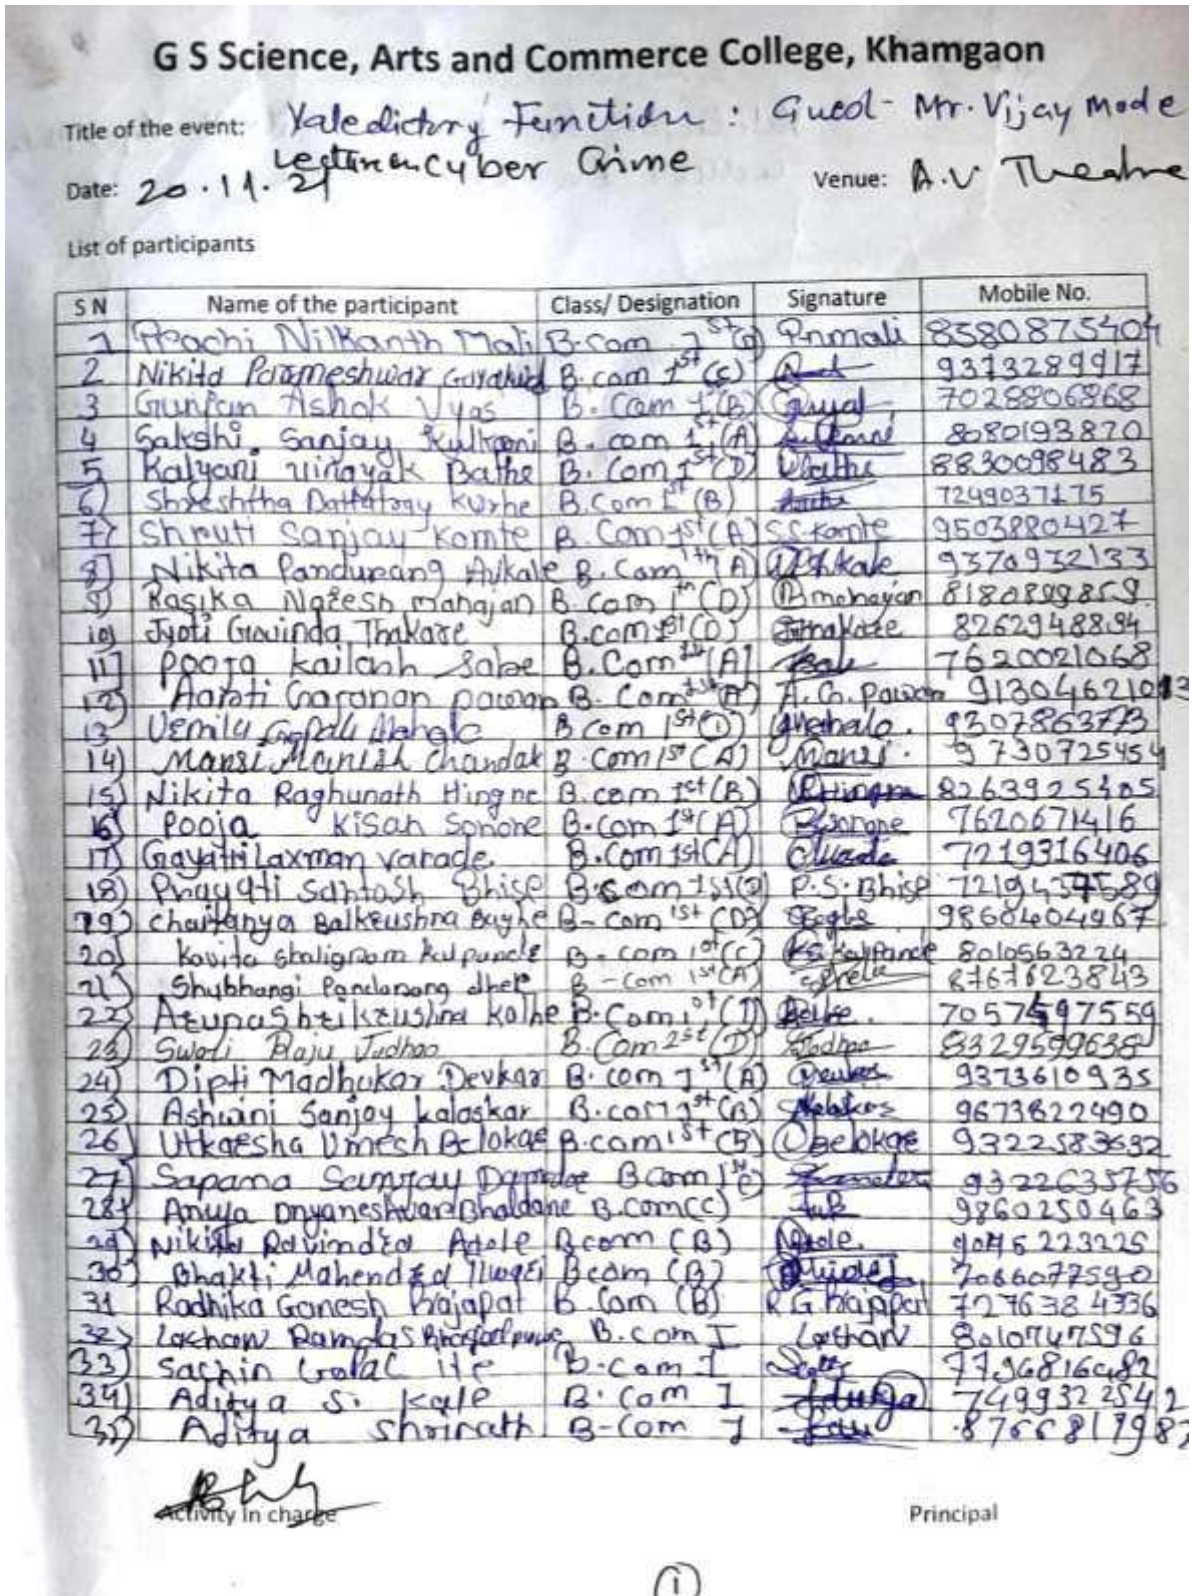 G S Science, Arts and Commerce College, Khamgaon
Title of the event: Valedictory Function : Guest - Mr. Vijay Mode
Lecture on Cyber Crime
Date: 20.11.21 Venue: A.V. Theatre
List of participants
S N Name of the participant Class/ Designation Signature Mobile No.
1 Prachi Nilkanth Mali B.com 1st Pnmali 8580875404
2 Nikita Parmeshwar B.com 1st (C) 9373289917
3 Gunjan Ashok Vyas B.Com 1st (B) 7028806868
4 Sakshi Sanjay Kulkarni B.com 1st (A) 8080193870
5 Kalyani vinayak Bathe B.Com 1st (D) 8830098483
6) Shreshtha Dattatray Kurhe B.Com 1st (B) 7249037175
7) Shruti Sanjay Komte B.Com 1st (A) S S Komte 9503880427
8] Nikita Pandurang Avkale B.Com 1th (A) 9370932133
9) Rasika Naresh mahajan B.Com 1th (D) Rmahajan 8180899859
10) Jyoti Govinda Thakare B.com 1st (D) 8262948894
11] Pooja Kailash Sabe B.Com 1st (A) 7620021068
12) Aarti Gajanan pawar B.Com 1st (A) A.G.pawar
13 B com 1st (D) 9307863773
14) Mansi Manish Chandak B.Com 1st (A) Mansi. 9730725454
15) Nikita Raghunath Hingne B.com 1st (B) 8263925405
16) Pooja Kisan Sonone B.Com 1st (A) 7620671416
17) Gayatri Laxman varade. B.Com 1st (A) 7219316406
18) Pragati Santosh Bhise B.com 1st P.S.Bhise
19) Chaitanya Balkrushna Baghe B-Com 1st (D) 9860404967
20) Kavita Shaligram Kalpande B-com 1st (C) K.S.Kalpande 8010563224
21) Shubhangi Pandurang dhep B-Com 1st (A) 8767623843
22) Arupa Shrikrushna Kolhe B.Com 1st (D) 7057597559
23) Swati Raju Jadhao B.Com 2st (D) Jadhao 8329599638
24) Dipti Madhukar Devkar B.com 1st (A) 9373610935
25) Ashwini Sanjay kalaskar B.com 1st (B) 9673822490
26) Utkarsha Umesh Belokar B.com 1st (B) UBelokar 9322583632
27) Sapana Sanjay B.Com 1st (C) 9322635756
28) Anuja Dnyaneshwar Bhaldane B.com (C) 9860250463
29) Nikita Ravindra Adole B.com (B) 9075223225
30) Bhakti Mahendra B.com (B) 7066077590
31 Radhika Ganesh Rajapat B.Com (B) 7276384336
32) Lakhan Ramdas B.com I Lakhan 8010747596
33) Sachin B.com I
34) Aditya S. Kale B.Com I 7499322542
35) Aditya Shrinath B-Com I
Activity In charge Principal
1